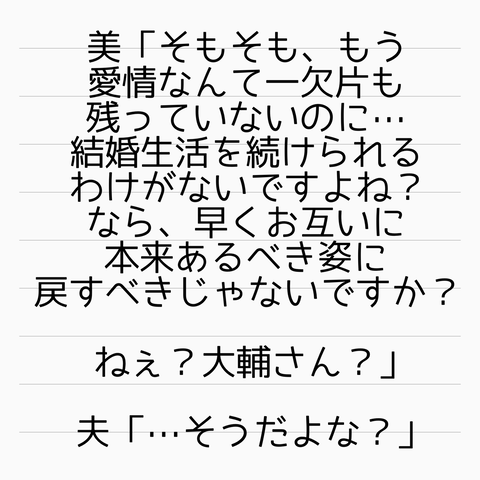 美「そもそも、もう
愛情なんて一欠片も
残っていないのに…
結婚生活を続けられる
わけがないですよね？
なら、早くお互いに
本来あるべき姿に
戻すべきじゃないですか？
ねぇ？大輔さん？」
夫「…そうだよな？」